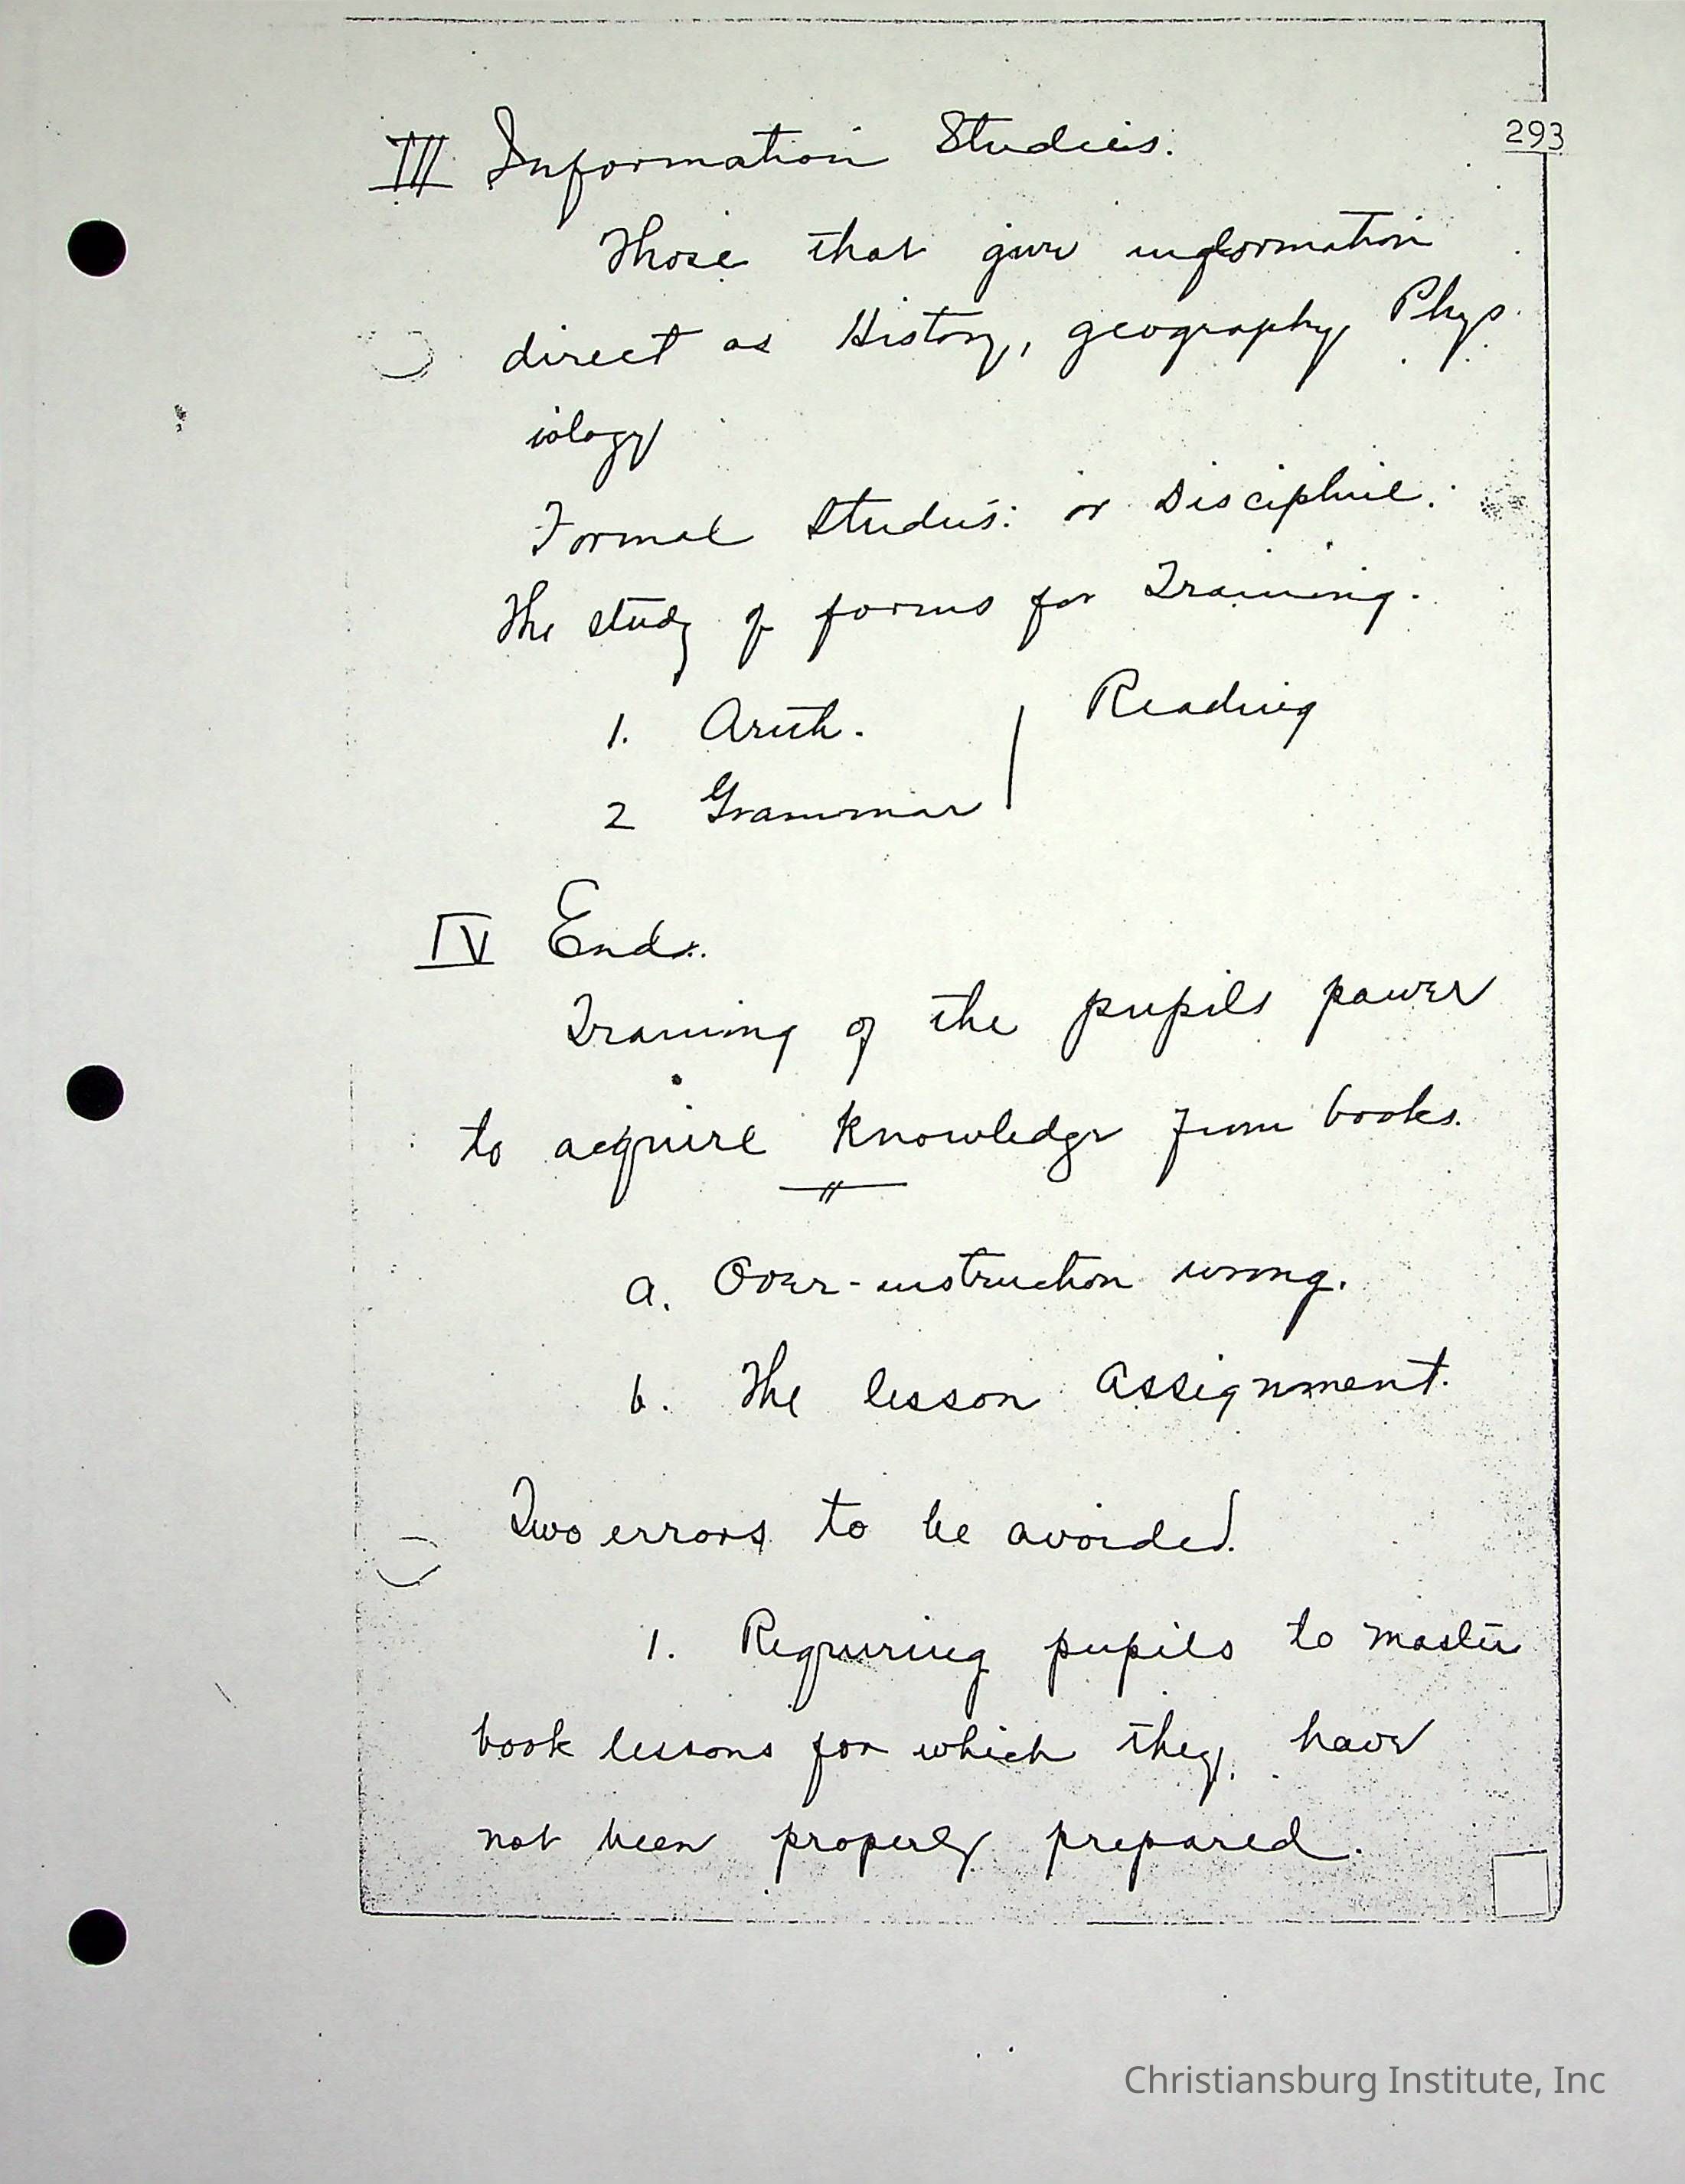 293
III Information Studies:
Those that give information
direct as History, geography Phys
iology
Formal Studies: or Discipline:
The study of forms for Training.
1. Arith. | Reading
2 Grammar
IV Ends.
Training of the pupils power
to acquire knowledge from books.
a. Over-instruction wrong.
b. The lesson assignment.
Two errors to be avoided.
1. Requiring pupils to master
book lessons for which they have
not been properly prepared.
Christiansburg Institute, Inc